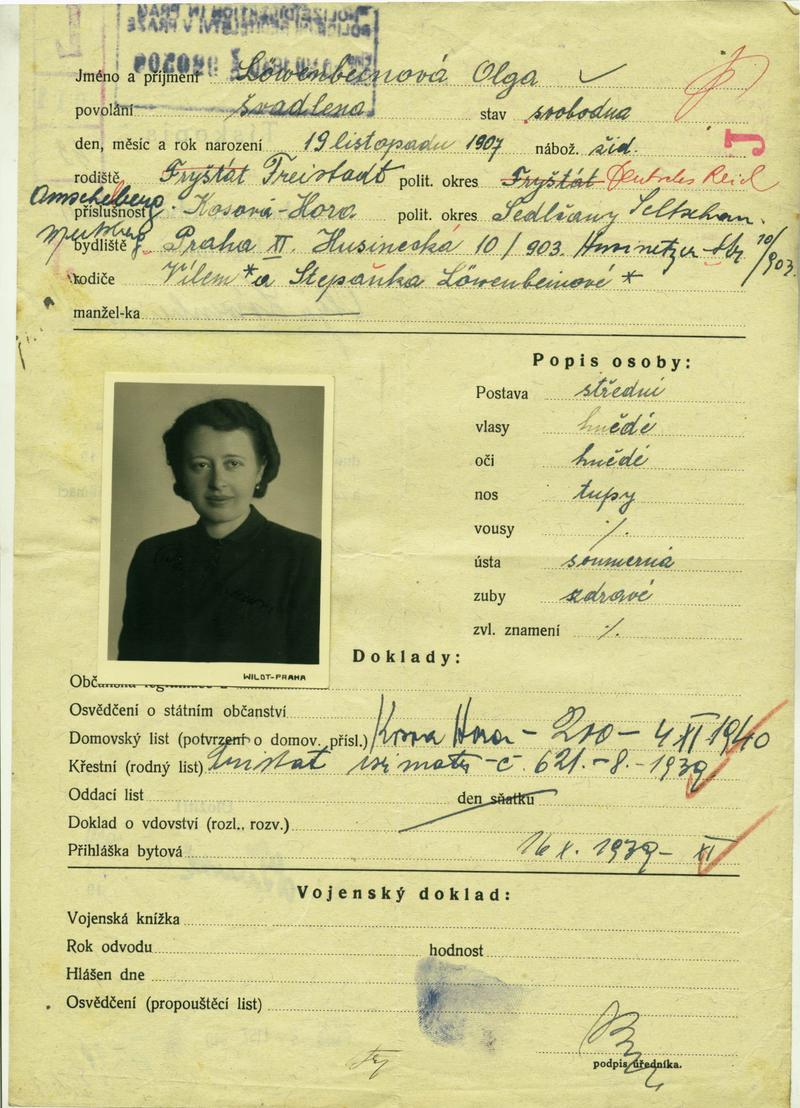 Jméno a příjmení Löwenbeinová Olga
povolání švadlena stav svobodna
den, měsíc a rok narození 19 listopadu 1907 nábož. žid.
rodiště Fryštát Freistadt polit. okres Fryštát Deutsches Reich
J
Amschelberg
příslušnost Kosová-Hora polit. okres Sedlčany Seltschan.
bydliště Praha XI. Husinecká 10/903. Husinetzer 10/903.
rodiče Vílem * a Štepánka Löwenbeinové *
manžel-ka
Popis osoby:
Postava střední
vlasy hnědé
oči hnědé
nos tupy
vousy ·/.
ústa soumerná
zuby zdravé
zvl. znamení ·/.
WILDT-PRAHA
Doklady:
Osvědčení o státním občanství
Domovský list (potvrzení o domov. přísl.) Kosova Hora - 210 - 4 XI 1940
Křestní (rodný list) č. 621.-8.-1939
Oddací list den sňatku
Doklad o vdovství (rozl., rozv.)
Přihláška bytová 16 X. 1939 - XI
Vojenský doklad:
Vojenská knížka
Rok odvodu hodnost
Hlášen dne
Osvědčení (propouštěcí list)
podpis úředníka.